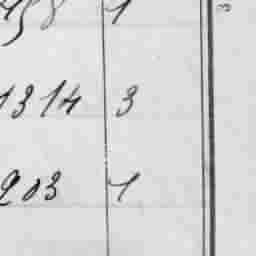 458 1
1314 3
203 1